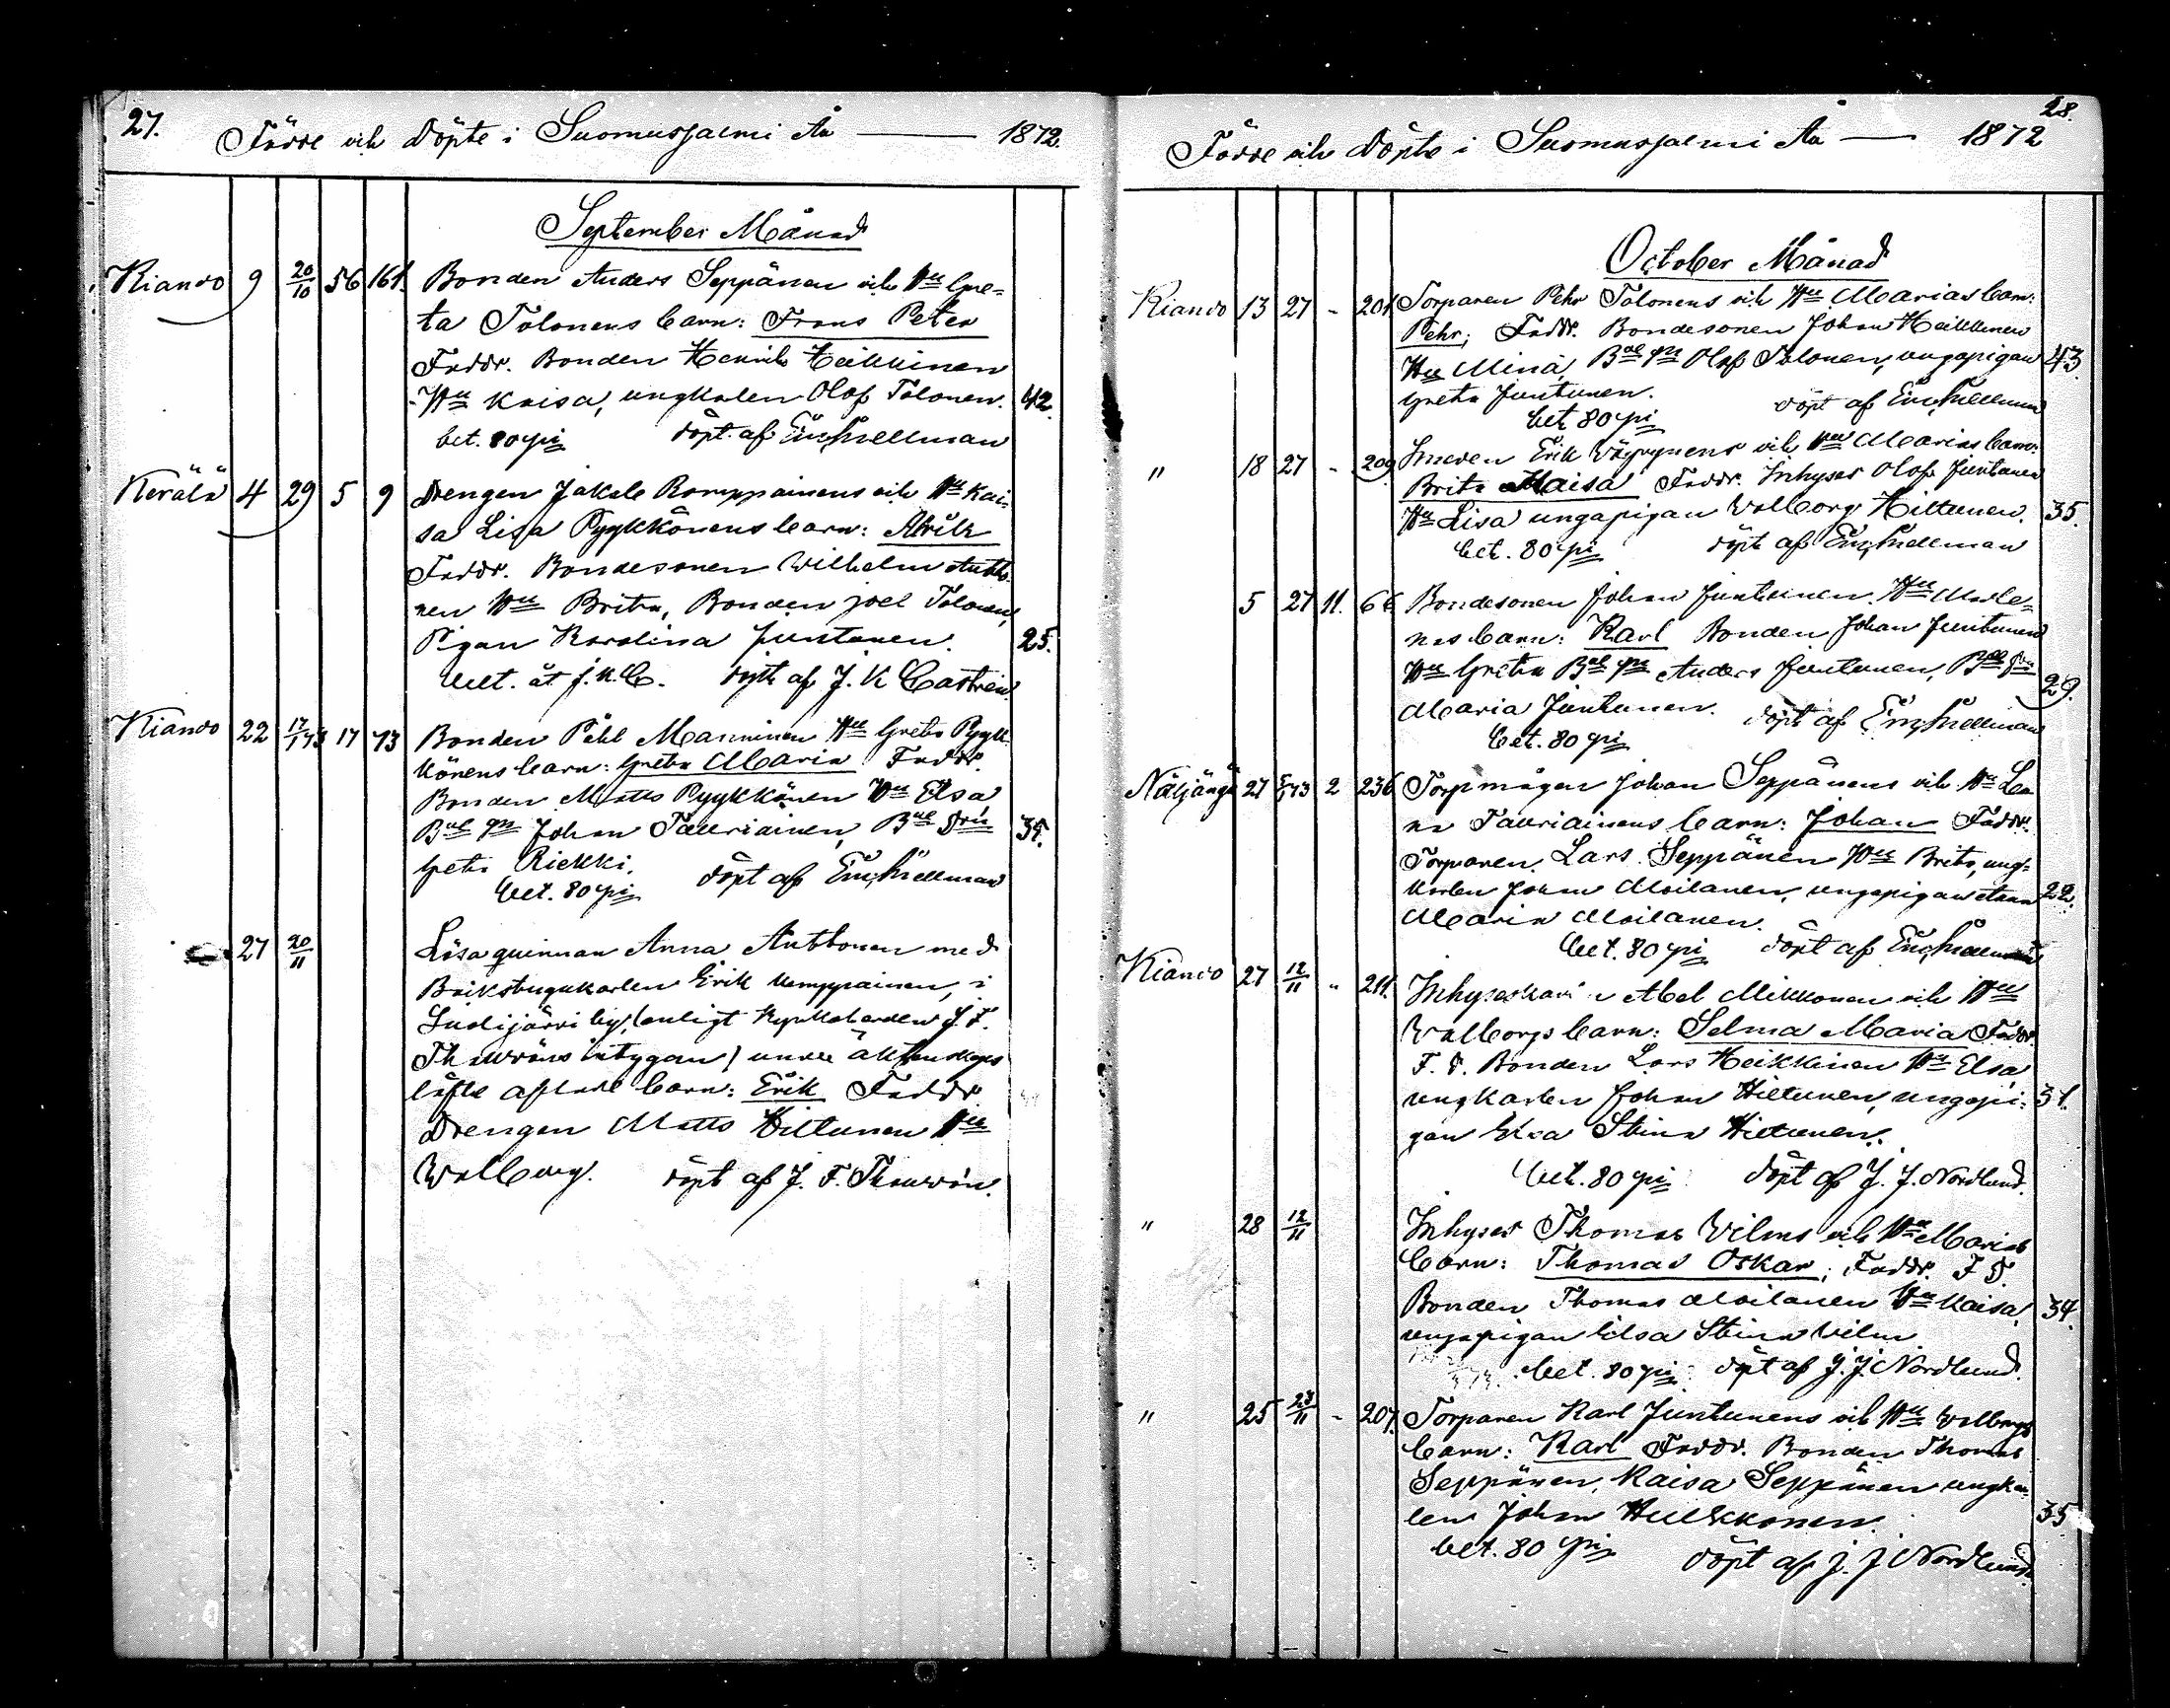 27.
Födde och Döpte i Suomusjalmi År — 1872.
September Månad
Kiando 9 20/10 56 161. Bonden Anders Seppänen och Hu Gre-
ta Tolonens barn: Frans Peter
Faddr. Bonden Henrik Heikkinen
Hu Kaisa, ungkalen Olof Tolonen. 42.
bet. 80 pi döpt af Em. Snellman
Kerälä 4 29 5 9 Drengen Jakob Romppainens och Hu Kai-
sa Lisa Pygkkönens barn:
Faddr. Bondesonen Wilhelm Antto-
nen Hu Brita, Bonden Joel Tolonen,
Pigan Karolina Juntunen. 25.
bet. åt J. K. C. döpt af J. K Castrén
Kiando 22 17/1 73 17 73 Bonden Påhl Manninen Hu Greta Pygk
könens barn: Greta Maria Faddr.
Bonden Matts Pygkkönen Hu Elsa
Johan Tauriainen,
Greta Riekki. 35.
bet. 80 pi döpt af Em. Snellman
27 20/11 Lösa quinnan Anna Anttonen med
Erik Kemppainen, i
by, (enligt Kyrkoherden J. F.
intygan) under äktenskaps
löfte aflade barn: Erik Faddr.
Drengen Matts Hiltunen Hu
Walborg. döpt af J. F. Thauvón.
28.
Födde och Döpte i Suomusjalmi År — 1872
October Månad
Kiando 13 27 - 201. Torparen Pehr Tolonens och Hu Marias barn:
Pehr; Faddr. Bondesonen Johan Heikkinen
Hu Mina, Olof Tolonen, ungapigan 43.
Greta Juntunen. döpt af Em. Snellman
bet 80 pi
" 18 27 - 209 Smeden Erik Väyrynens och Hu Marias barn:
Brita Kaisa Faddr. Inhyses Olof Juntunen
Hu Lisa ungapigan Walborg Hiltunen. 35.
bet. 80 pi döpt af Em. Snellman
5 27 11. 66 Bondesonen Johan Juntunen. Hu Made-
nas barn: Karl Bonden Johan Juntunen
Hu Greta Anders Juntunen,
Maria Juntunen. döpt af Em. Snellman 29.
bet. 80 pi
Näljängä 27 5/1 73 2 236 Torpmågen Johan Seppänens och Hu Lee
na Tauriainens barn: Johan Faddr.
Torparen Lars Seppänen Hu Brita, ung-
karlen Johan Moilanen, ungapigan Anna 22.
Maria Moilanen.
bet. 80 pi döpt af Em. Snellman
Kiando 27 12/11 " 211. Abel Mikkonen och Hu
Walborgs barn: Selma Maria Faddr.
F. d. Bonden Lars Heikkinen Hu Elsa
ungkarlen Johan Hiltunen, ungapi- 31.
gan Elsa Stina Hiltunen.
bet. 80 pi döpt af J. J. Nordlund.
" 28 12/11 Inhyses Thomas Vilms och Hu Marias
barn: Thomas Oskar; Faddr. F D.
Bonden Thomas Moilanen Hu Kaisa, 34.
ungapigan Elsa Stina Vilm
bet. 80 pi. döpt af J. J. Nordlund.
" 25 23/11 - 207. Torparen Karl Juntunens och Hu Walborgs
barn: Karl Faddr. Bonden Thomas
Seppänen, Kaisa Seppänen ungka-
len Johan Hulkkonen. 35
bet. 80 pi döpt af J. J Nordlund.